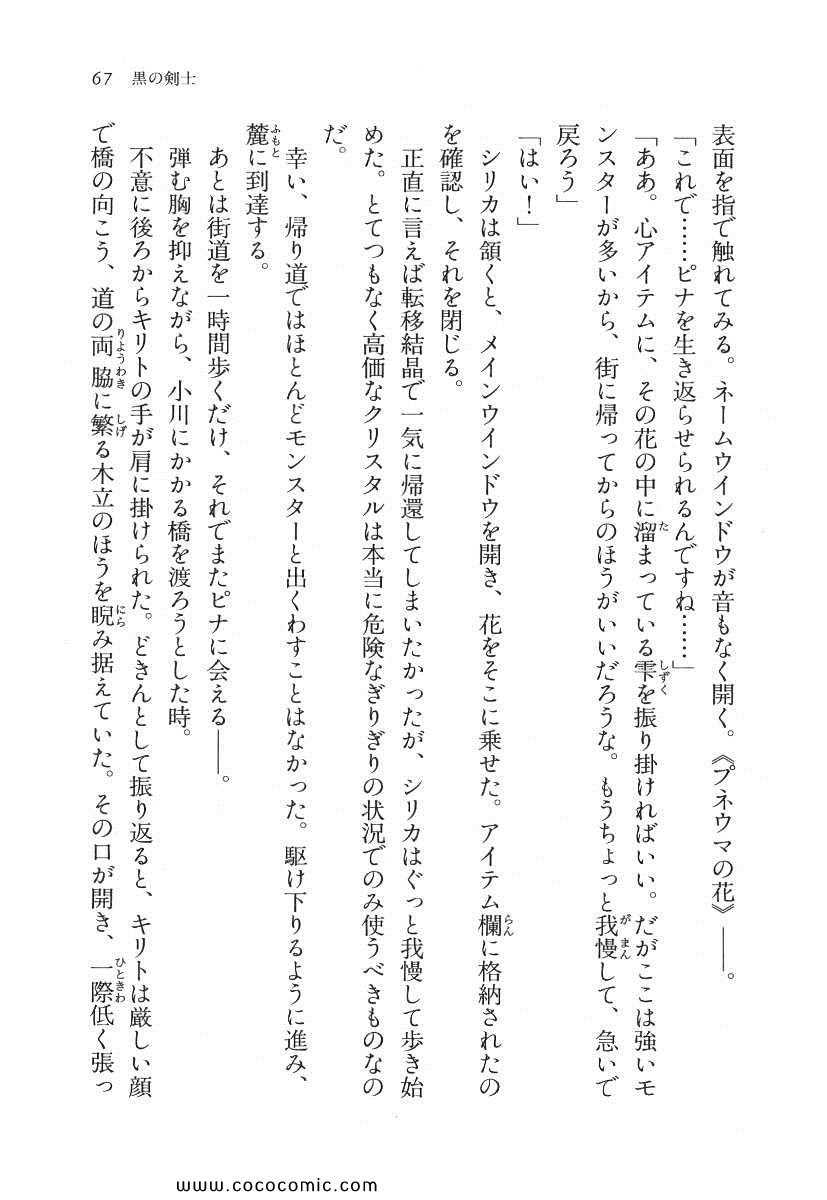 67　黒の剣士
表面を指で触れてみる。ネームウインドウが音もなく開く。《プネウマの花》――。
「これで……ピナを生き返らせられるんですね……」
「ああ。心アイテムに、その花の中に溜まっている雫を振り掛ければいい。だがここは強いモ
ンスターが多いから、街に帰ってからのほうがいいだろうな。もうちょっと我慢して、急いで
戻ろう」
「はい！」
シリカは頷くと、メインウインドウを開き、花をそこに乗せた。アイテム欄に格納されたの
を確認し、それを閉じる。
正直に言えば転移結晶で一気に帰還してしまいたかったが、シリカはぐっと我慢して歩き始
めた。とてつもなく高価なクリスタルは本当に危険なぎりぎりの状況でのみ使うべきものなの
だ。
幸い、帰り道ではほとんどモンスターと出くわすことはなかった。駆け下りるように進み、
麓に到達する。
あとは街道を一時間歩くだけ、それでまたピナに会える――。
弾む胸を抑えながら、小川にかかる橋を渡ろうとした時。
不意に後ろからキリトの手が肩に掛けられた。どきんとして振り返ると、キリトは厳しい顔
で橋の向こう、道の両脇に繁る木立のほうを睨み据えていた。その口が開き、一際低く張っ
www.cococomic.com/